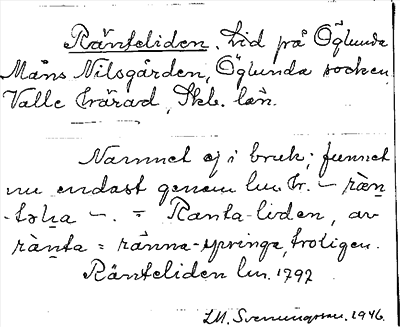 Ränteliden. Lid på Öglunda
Måns Nilsgården, Öglunda socken,
Valle härad, Skb. län.
Namnet ej i bruk; funnet
nu endast genom lm. h. – rän-
– . = Ranta-liden, av
rànta = ränna-springa, troligen.
Ränteliden lm. 1797
1946.